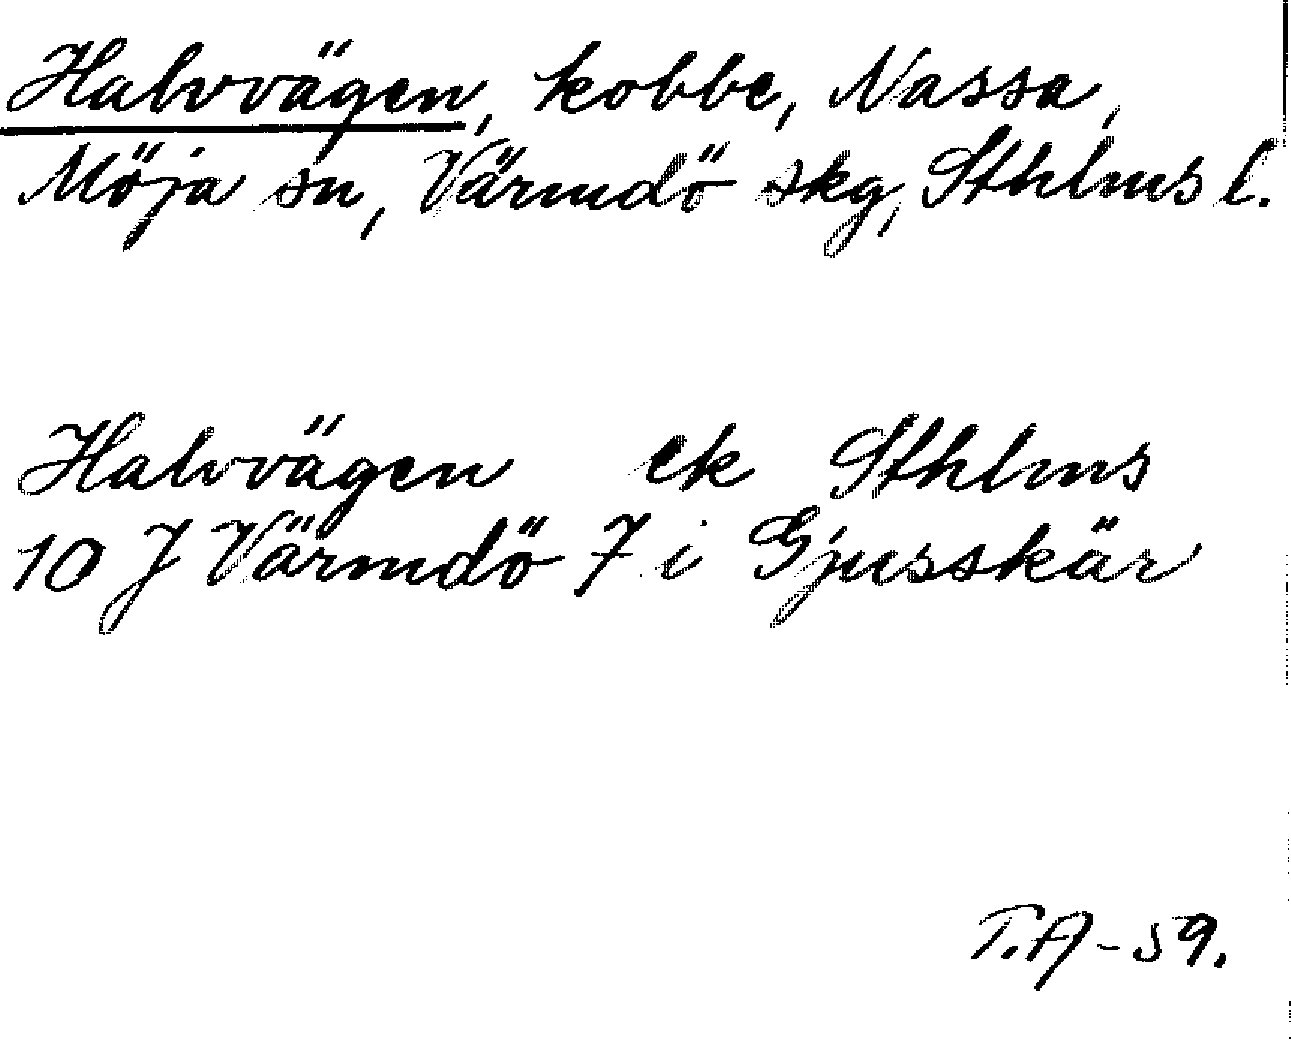 Halvvägen, kobbe, Nassa,
Möja sn, Värmdö skg, Sthlms l.
Halvvägen ek Sthlms
10 J Värmdö 7 i Gjusskär
T.A-59.